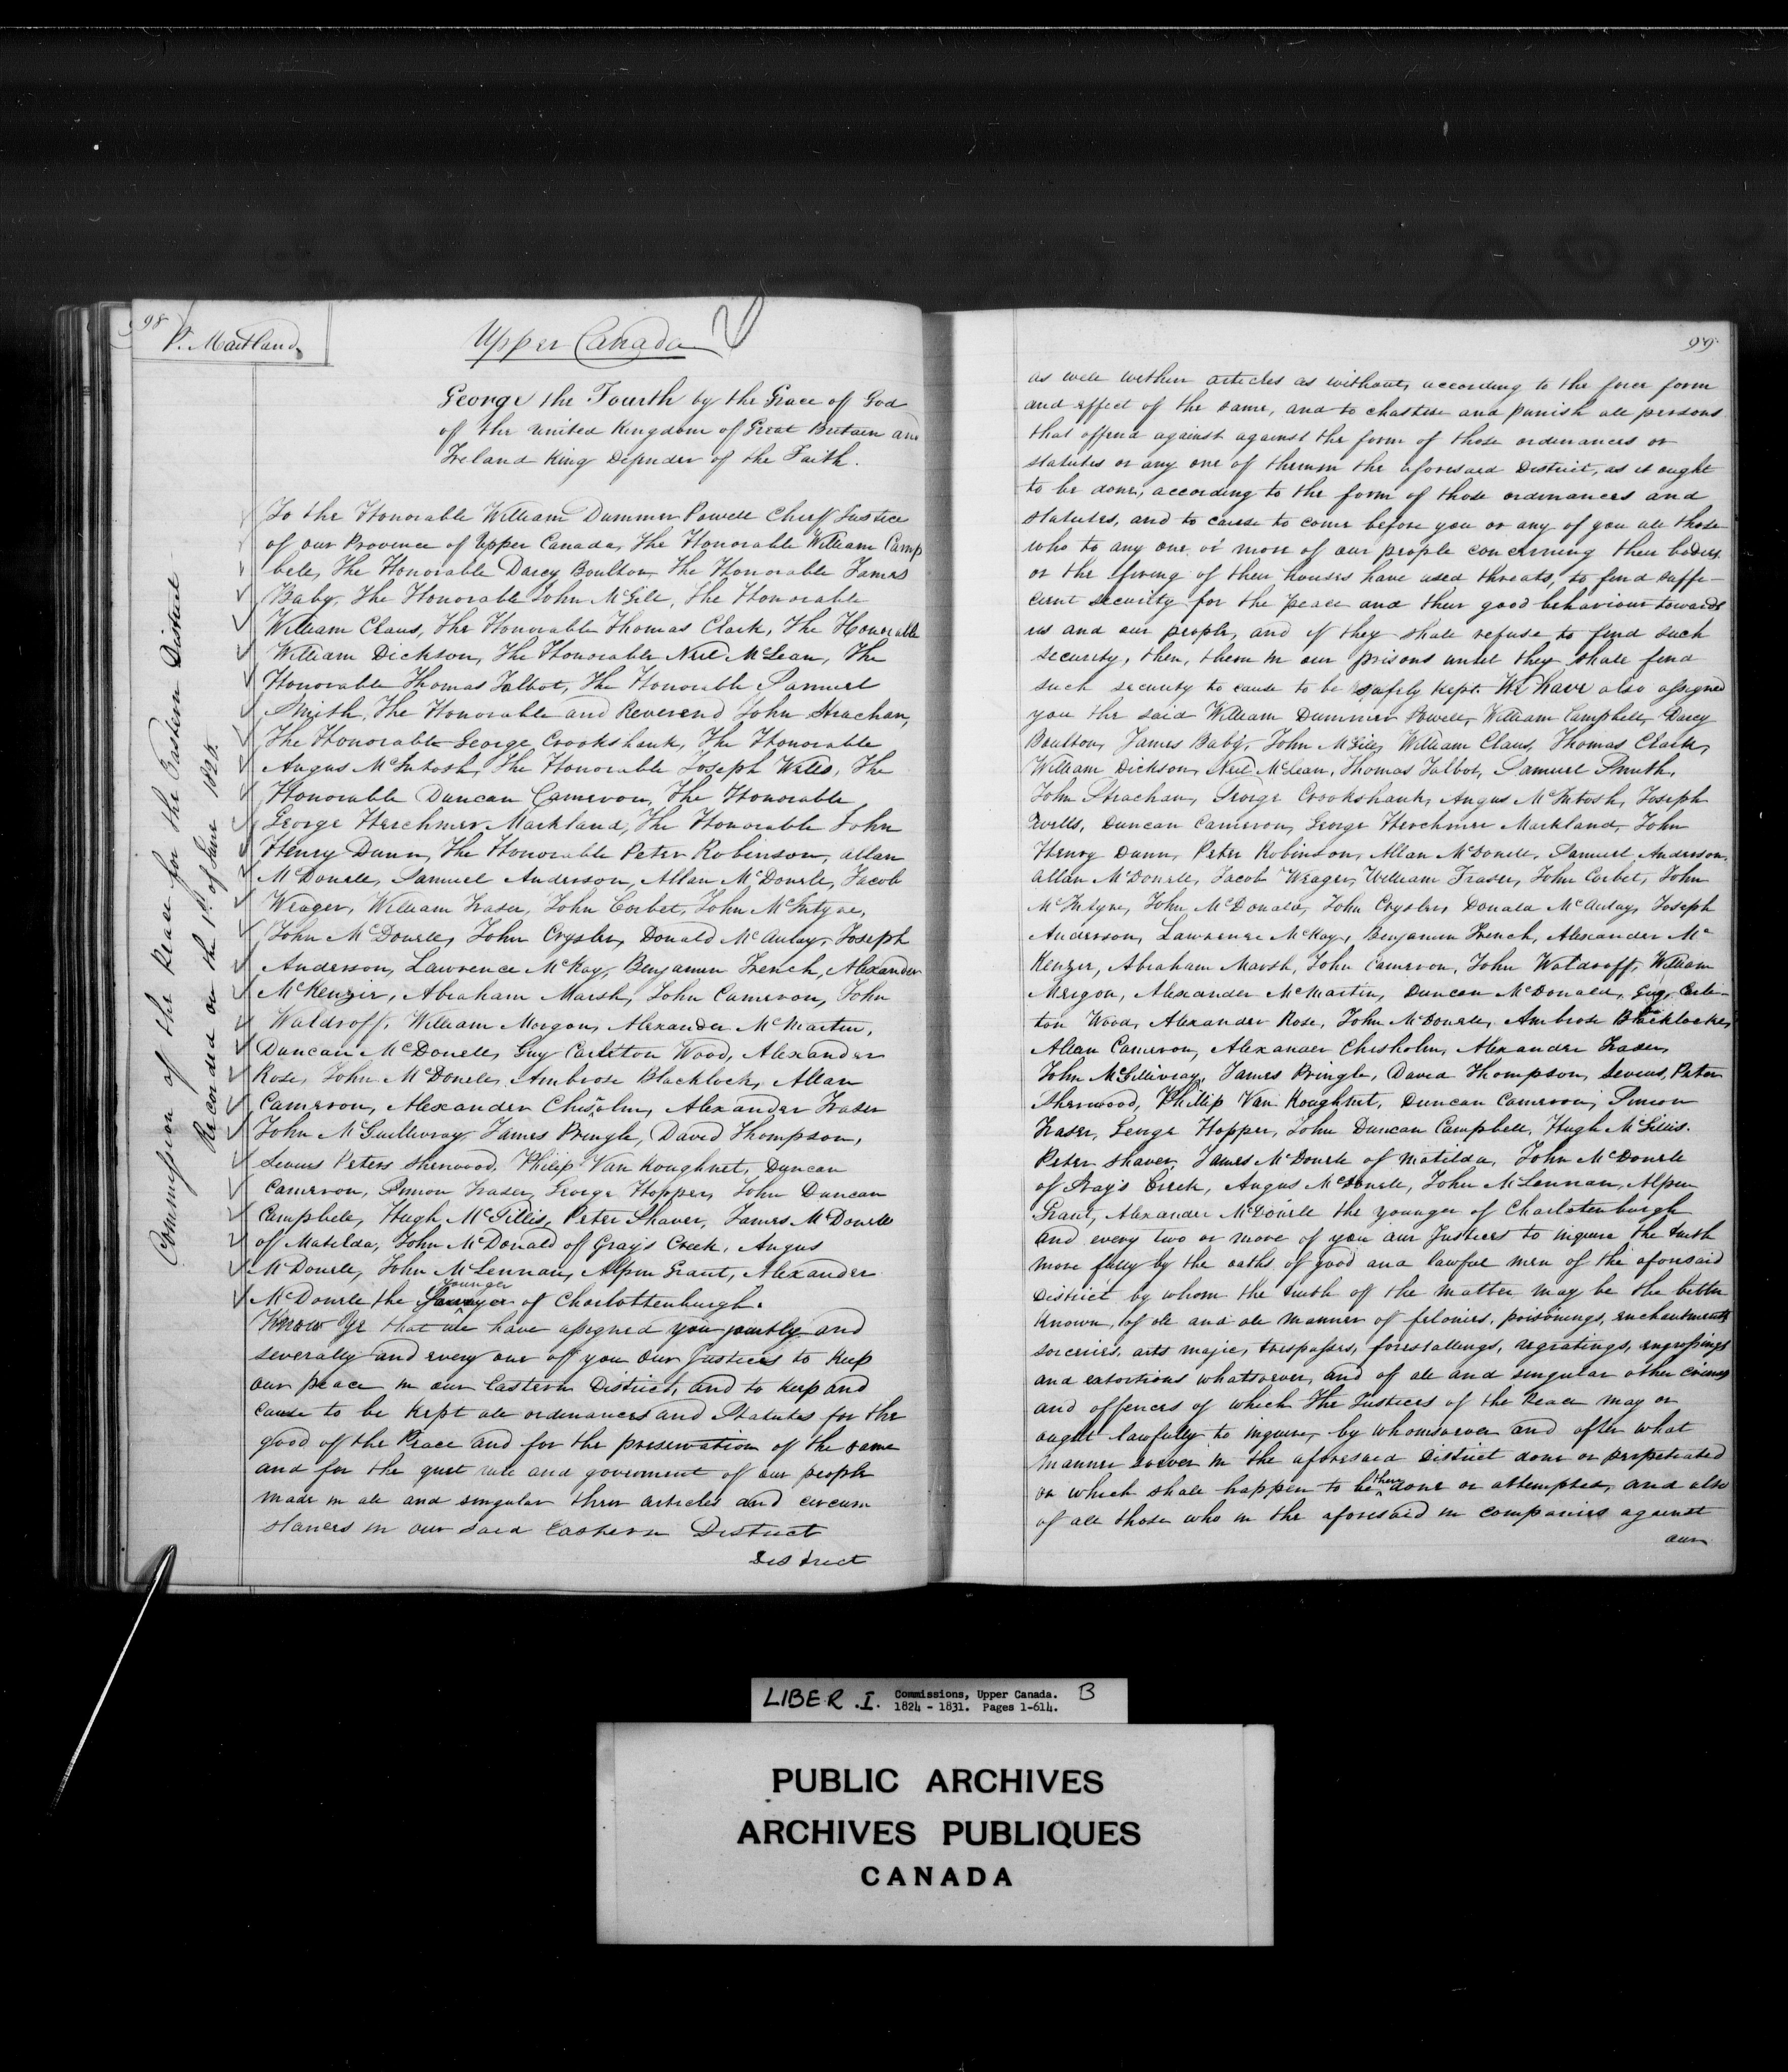 98
P. Maitland
Upper Canada
George the Fourth by the Grace of God
of the United Kingdom of Great Britain and
Ireland King Defender of the Faith.
Commission of the Peace for the Eastern District
Recorded on the 1st of June 1824
To the Honorable William Dummer Powell Chief Justice
of our Province of Upper Canada, the Honorable William Camp
bell, The Honorable Darcy Boulton The Honorable James
Baby, The Honorable John McGill, the Honorable
William Claus, the Honorable Thomas Clark, The Honorable
William Dickson, The Honorable Neil McLean, The
Honorable Thomas Talbot, The Honorable Samuel
Smith, The Honorable and Reverend John Strachan,
The Honorable George Crookshank, The Honorable
Angus McIntosh, The Honorable Joseph Wells, The
Honorable Duncan Cameron, The Honorable
George Herchmer Markland, The Honorable John
Henry Dunn, The Honorable Peter Robinson, allan
McDonell, Samuel Anderson, Allan McDonell, Jacob
Weager, William Fraser, John Corbet, John McIntyre,
John McDonell, John Crysler, Donald McAulay, Joseph
Anderson, Lawrence McKay, Benjamin French, Alexander
McKenzie, Abraham Marsh, John Cameron, John
Waldroff, William Morgan, Alexander McMartin,
Duncan McDonell, Guy Carleton Wood, Alexander
Rose, John McDonell, Ambrose Blacklock, Allan
Cameron, Alexander Chisholm, Alexander Fraser
John McGuillivray, James Pringle, David Thompson,
Livius Peters Sherwood, Philip Van Koughnet, Duncan
Cameron, Simon Fraser, George Hopper, John Duncan
Campbell, Hugh McGillis, Peter Shaver, James McDonell
of Matilda, John McDonald of Gray's Creek, Angus
McDonell, John McLennan, Alpin Grant, Alexander
McDonell the younger of Charlottenburgh.
Know Ye that we have assigned you jointly and
severally and every one of you Our Justices to keep
our peace in our Eastern District, and to keep and
cause to be kept all ordinances and Statutes for the
good of the Peace and for the preservation of the same
and for the quiet rule and goverment of our people
made in all and singular their articles and circum
stances in our said Eastern District
District
99
as well within articles as without, according to the force form
and effect of the same, and to chastise and punish all persons
that offend against against the form of those ordinances or
statutes or any one of them in the aforesaid District, as it ought
to be done, according to the form of those ordinances and
statutes, and to cause to come before you or any of you all those
who to any one or more of our people concerning their bodies
or the firing of their houses have used threats, to find suffi-
cient security for the peace and their good behaviour towards
us and our people, and if they shall refuse to find such
security, then, them in our prisons until they shall find
such security to cause to be safely kept. We have also assigned
you the said William Dummer Powell, William Campbell, Darcy
Boulton, James Baby, John McGill, William Claus, Thomas Clark,
William Dickson, Neil McLean, Thomas Talbot, Samuel Smith,
John Strachan, George Crookshank, Angus McIntosh, Joseph
Wells, Duncan Cameron, George Herchmer Markland, John
Henry Dunn, Peter Robinson, Allan McDonell, Samuel Anderson,
allan McDonell, Jacob Weager, William Fraser, John Corbet, John
McIntyre, John McDonald, John Crysler, Donald McAulay, Joseph
Anderson, Lawrence McKay, Benjamin French, Alexander Mc
Kenzie, Abraham Marsh, John Cameron, John Waldroff, William
Alexander McMartin, Duncan McDonald, Guy Carle-
ton Wood, Alexander Rose, John McDonell, Ambrose Blacklocke,
Allan Cameron, Alexander Chisholm, Alexander Fraser,
John McGillivray, James Pringle, David Thompson, Levius, Peter
Sherwood, Phillip Van Koughnet, Duncan Cameron, Simon
Fraser, George Hopper, John Duncan Campbell, Hugh McGillis.
Peter Shaver, James McDonell of Matilda, John McDonell
of Gray's Creek, Angus McDonell, John McLennan, Alpin
Grant, Alexander McDonell the younger of Charlotenburgh
and every two or more of you our Justices to inquire the truth
more fully by the oaths of good and lawful men of the aforesaid
District by whom the truth of the matter may be the better
known, of all and all manner of felonies, poisonings, enchantments
sorceries, arts magic, trespasses, forestallings, regratings, engrossings
and extortions whatsoever, and of all and singular other crimes
and offences of which The Justices of the Peace may or
ought lawfully to inquire, by whomsoever and after what
manner soever in the aforesaid District done or perpetrated
or which shall happen to be there done or attempted, and also
of all those who in the aforesaid in companies against
our
LIBER .I. Commissions, Upper Canada. B
1824 - 1831. Pages 1-614.
PUBLIC ARCHIVES
ARCHIVES PUBLIQUES
CANADA